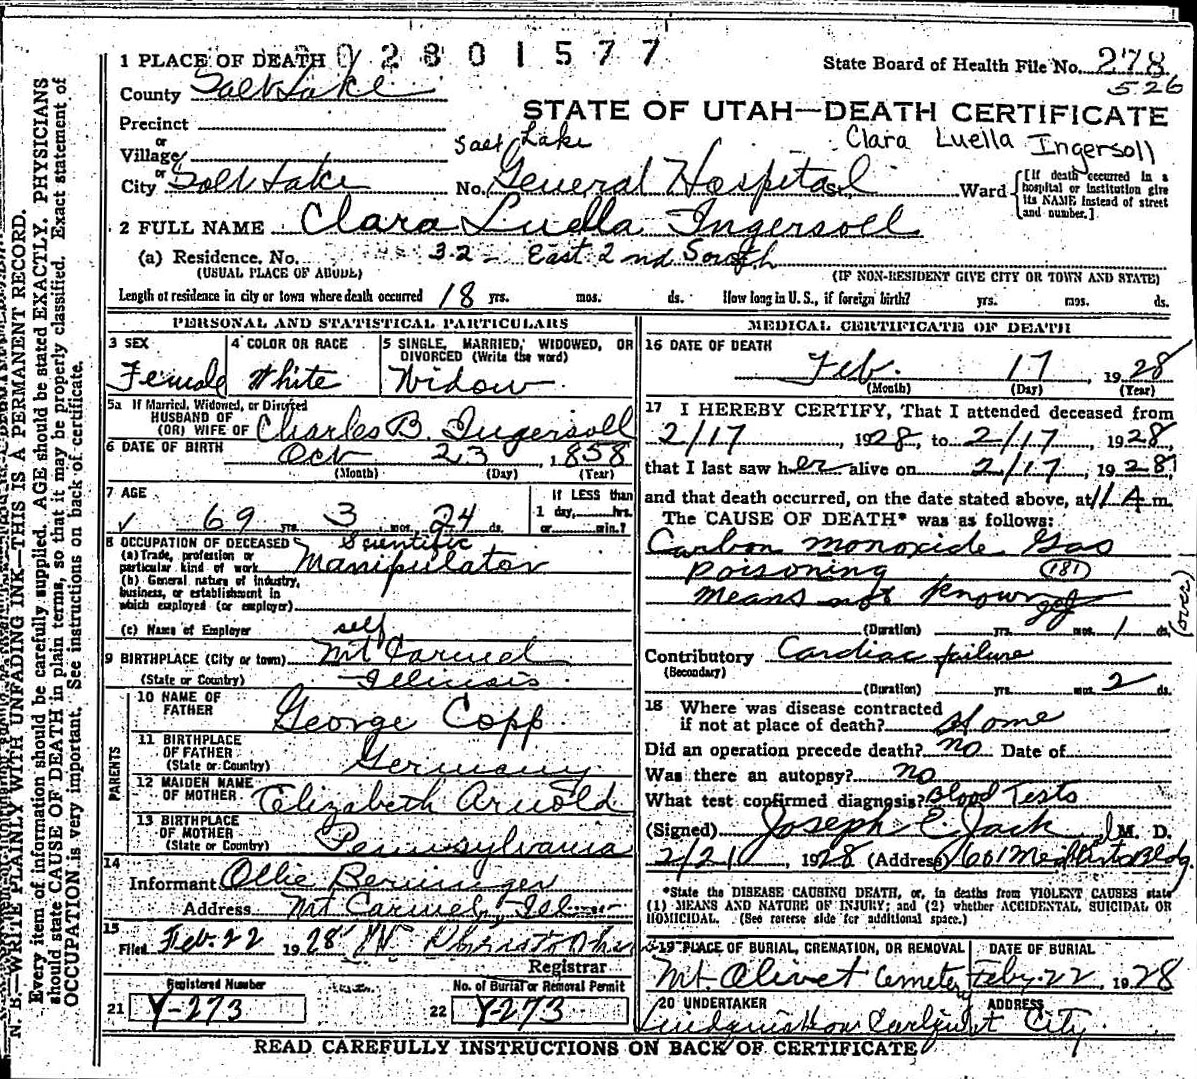 1 PLACE OF DEATH 02801577
State Board of Health File No. 278
526
County Salt Lake
STATE OF UTAH—DEATH CERTIFICATE
Precinct
or
Village
Salt Lake
Clara Luella Ingersoll
or
City Salt Lake No. General Hospital St. Ward [If death occurred in a hospital or institution give its NAME instead of street and number.]
2 FULL NAME Clara Luella Ingersoll
(a) Residence. No. 32 - East 2nd South
(USUAL PLACE OF ABODE) (IF NON-RESIDENT GIVE CITY OR TOWN AND STATE)
Length of residence in city or town where death occurred 18 yrs. mos. ds. How long in U. S., if foreign birth? yrs. mos. ds.
PERSONAL AND STATISTICAL PARTICULARS
3 SEX 4 COLOR OR RACE 5 SINGLE, MARRIED, WIDOWED, OR DIVORCED (Write the word)
Female White Widow
5a If Married, Widowed, or Divorced
HUSBAND OF
(OR) WIFE OF Charles B. Ingersoll
6 DATE OF BIRTH Oct 23, 1858
(Month) (Day) (Year)
7 AGE If LESS than
1 day, hrs.
69 yrs. 3 mos. 24 ds. or min.?
8 OCCUPATION OF DECEASED Scientific
(a) Trade, profession or
particular kind of work Manipulator
(b) General nature of industry,
business, or establishment in
which employed (or employer)
(c) Name of Employer self
9 BIRTHPLACE (City or town) Mt Carmel
(State or Country) Illinois
PARENTS
10 NAME OF
FATHER George Copp
11 BIRTHPLACE
OF FATHER
(State or Country) Germany
12 MAIDEN NAME
OF MOTHER Elizabeth Arnold
13 BIRTHPLACE
OF MOTHER
(State or Country) Pennsylvania
14
Informant Ollie Berninger
Address Mt Carmel, Ill
15
Filed Feb. 22 1928
Registrar
Registered Number No. of Burial or Removal Permit
21 Y-273 22 Y-273
MEDICAL CERTIFICATE OF DEATH
16 DATE OF DEATH
Feb. 17, 1928
(Month) (Day) (Year)
17 I HEREBY CERTIFY, That I attended deceased from
2/17, 1928, to 2/17, 1928,
that I last saw her alive on 2/17, 1928
and that death occurred, on the date stated above, at 11 A m.
The CAUSE OF DEATH* was as follows:
Carbon monoxide Gas
Poisoning (181)
means not known
(over)
(Duration) yrs. mos. 1 ds.
Contributory Cardiac failure
(Secondary)
(Duration) yrs. mos. 2 ds.
18 Where was disease contracted
if not at place of death? Home
Did an operation precede death? no Date of
Was there an autopsy? no
What test confirmed diagnosis? Blood Tests
(Signed) Joseph E Jack M. D.
2/21, 1928 (Address) 601 Med Arts Bldg
*State the DISEASE CAUSING DEATH, or, in deaths from VIOLENT CAUSES state
(1) MEANS AND NATURE OF INJURY; and (2) whether ACCIDENTAL, SUICIDAL OR
HOMICIDAL. (See reverse side for additional space.)
19 PLACE OF BURIAL, CREMATION, OR REMOVAL DATE OF BURIAL
Mt. Olivet Cemetery Feby. 22, 1928
20 UNDERTAKER ADDRESS
City
READ CAREFULLY INSTRUCTIONS ON BACK OF CERTIFICATE
N. B.—WRITE PLAINLY WITH UNFADING INK—THIS IS A PERMANENT RECORD.
Every item of information should be carefully supplied. AGE should be stated EXACTLY. PHYSICIANS
should state CAUSE OF DEATH in plain terms, so that it may be properly classified. Exact statement of
OCCUPATION is very important. See instructions on back of certificate.